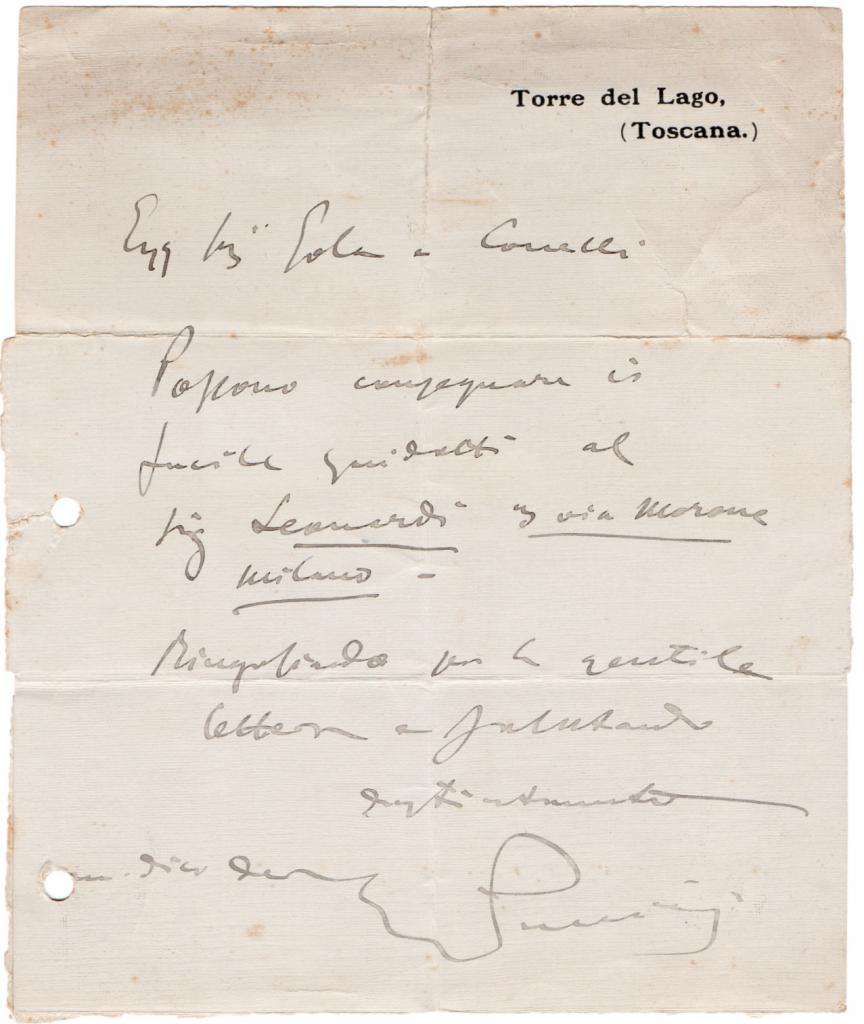 Torre del Lago,
(Toscana.)
Egg Sig Gola e Conelli
Possono consegnare il
fucile Guidotti al
Sig Leonardi 3 via Morone
Milano -
Ringraziando per la gentile
lettera e salutando
distintamente
mi dico dev
G Puccini